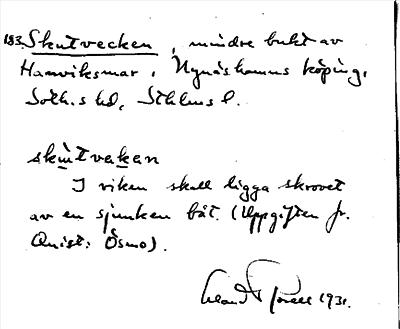 183. Skutvecken, mindre bukt av
Hamviksmar, Nynäshamns köping,
Soth. s hd, Sthlms l.
skùtvekan
I viken skall ligga skrovet
av en sjunken båt. (Uppgiften fr.
Quist: Ösmo).
1931.